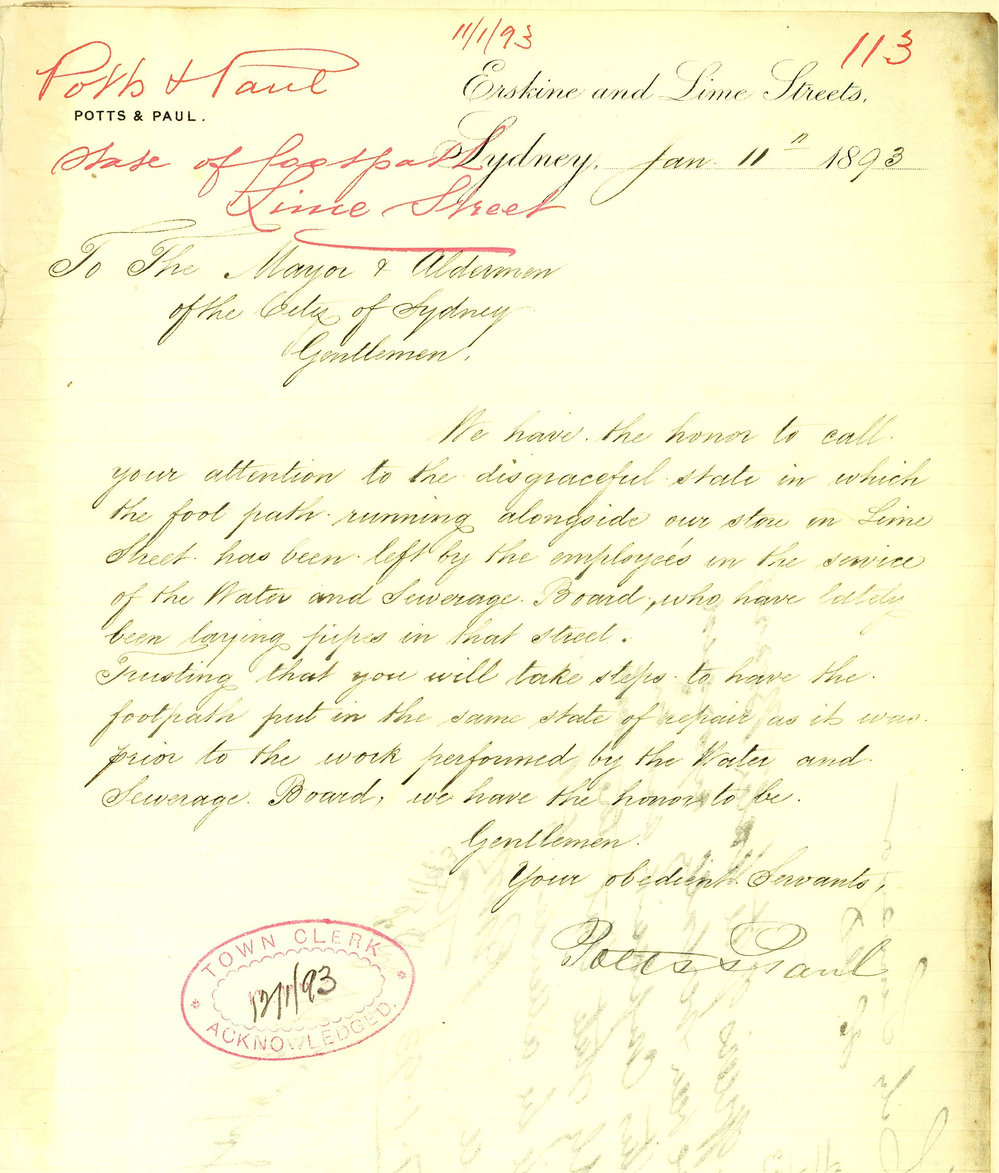 11/1/93
113
Potts & Paul
Erskine and Lime Streets,
POTTS & PAUL.
State of footpath
Sydney, Jan 11th 1893
Lime Street
To The Mayor & Aldermen
of the City of Sydney
Gentlemen,
We have the honor to call
your attention to the disgraceful state in which
the foot path running alongside our store in Lime
Street has been left by the employeé's in the service
of the Water and Sewerage Board, who have lately
been laying pipes in that street.
Trusting that you will take steps to have the
footpath put in the same state of repair as it was
prior to the work performed by the Water and
Sewerage Board, we have the honor to be.
Gentlemen.
Your obedient Servants,
Potts & Paul
TOWN CLERK
12/1/93
ACKNOWLEDGED.